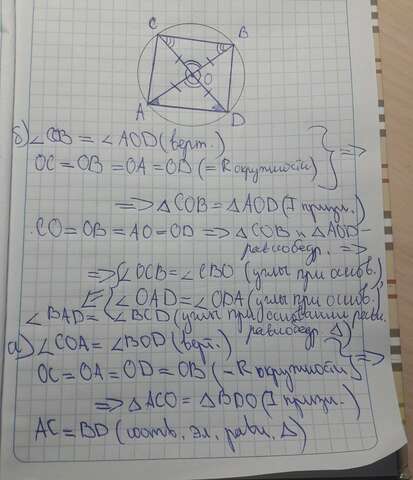 C B
O
A D
б) ∠COB = ∠AOD (верт.)
OC = OB = OA = OD (= R окружности) } =>
=> △COB = △AOD (I призн.)
CO = OB = AO = OD => △COB и △AOD -
равнобедр. =>
=> { ∠OCB = ∠CBO (углы при основ.)
∠OAD = ∠ODA (углы при основ.)
∠BAD = ∠BCD (углы при основании равн.
равнобедр. △)
а) ∠COA = ∠BOD (верт.)
OC = OA = OD = OB (- R окружности) } =>
=> △ACO = △BDO (I призн.)
AC = BD (соотв. эл. равн. △)